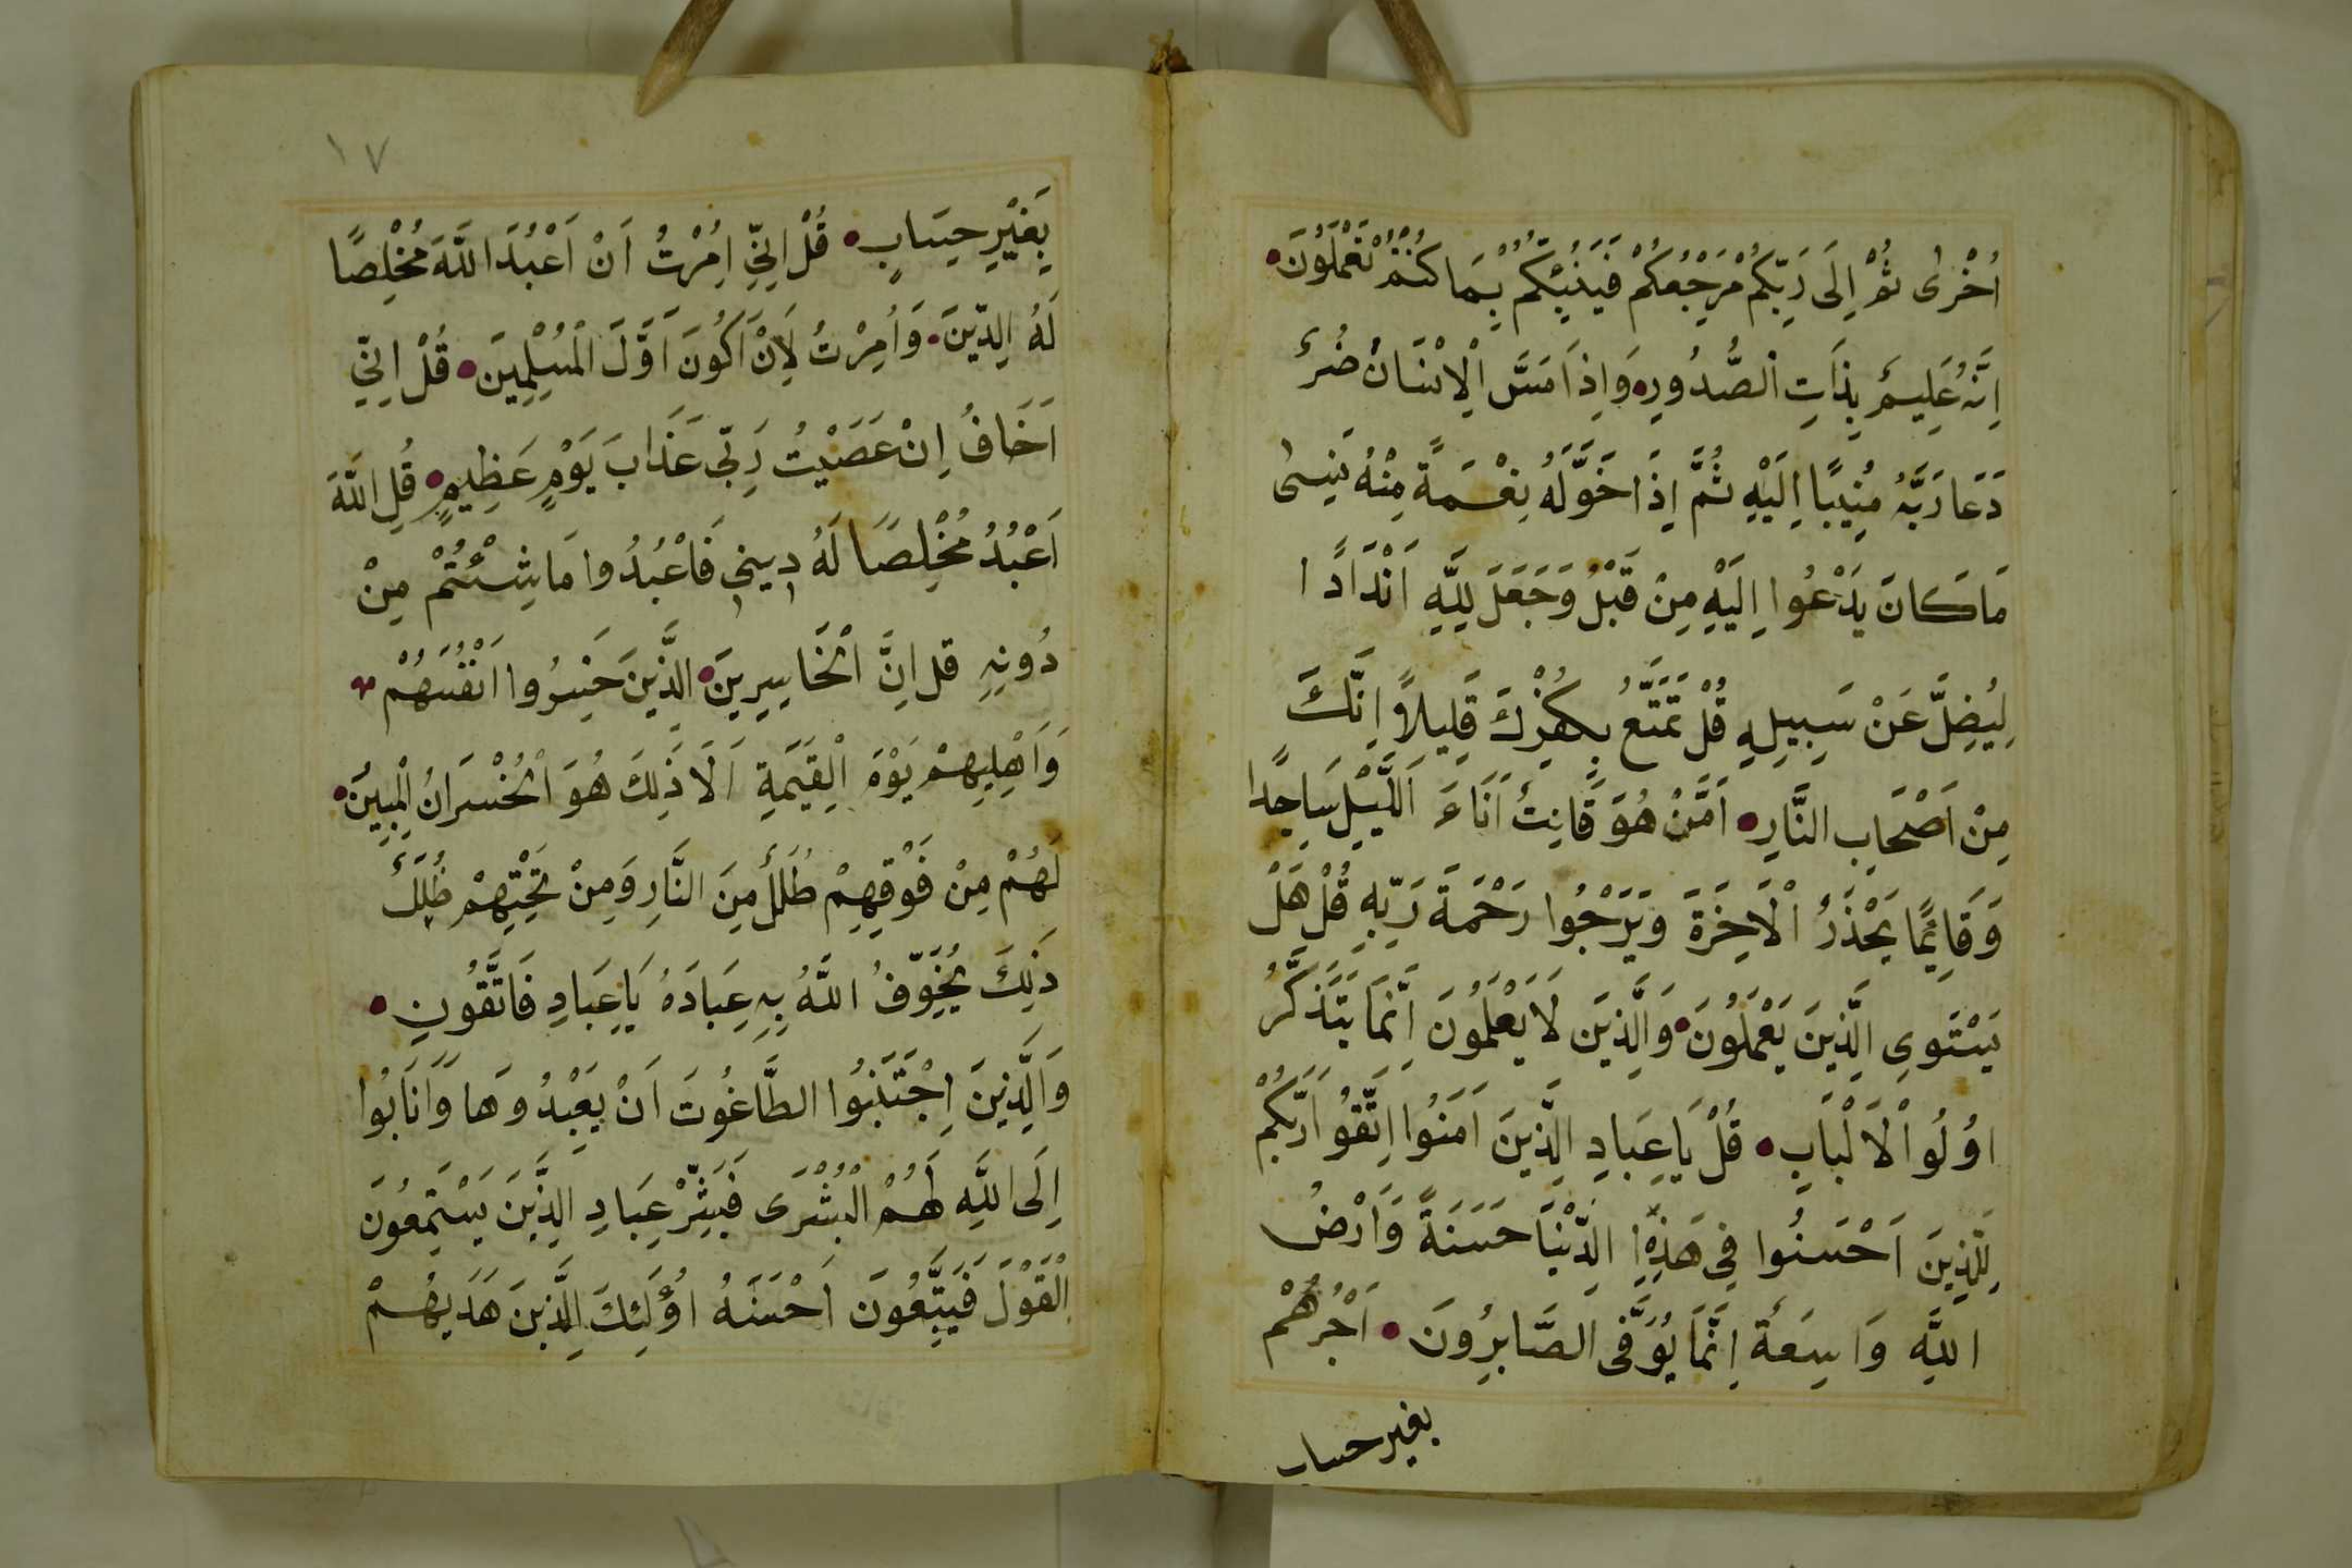 اُخْرٰى ثُمَّ اِلَى رَبِّكُمْ مَرْجِعُكُمْ فَيُنَبِّئُكُمْ بِمَا كُنْتُمْ تَعْمَلُونَ
اِنَّهُ عَلِيمٌ بِذَاتِ الصُّدُورِ وَاِذَا مَسَّ الْاِنْسَانَ ضُرٌّ
دَعَا رَبَّهُ مُنِيبًا اِلَيْهِ ثُمَّ اِذَا خَوَّلَهُ نِعْمَةً مِنْهُ نَسِىَ
مَا كَانَ يَدْعُوا اِلَيْهِ مِنْ قَبْلُ وَجَعَلَ لِلّٰهِ اَنْدَادًا
لِيُضِلَّ عَنْ سَبِيلِهِ قُلْ تَمَتَّعْ بِكُفْرِكَ قَلِيلًا اِنَّكَ
مِنْ اَصْحَابِ النَّارِ اَمَّنْ هُوَ قَانِتٌ اَنَاءَ اللَّيْلِ سَاجِدًا
وَقَائِمًا يَحْذَرُ الْاَخِرَةَ وَيَرْجُوا رَحْمَةَ رَبِّهِ قُلْ هَلْ
يَسْتَوِى الَّذِينَ يَعْمَلُونَ وَالَّذِينَ لَا يَعْلَمُونَ اِنَّمَا يَتَذَكَّرُ
اوُلُوا الْاَلْبَابِ قُلْ يَا عِبَادِ الَّذِينَ اَمَنُوا اِتَّقُوا رَبَّكُمْ
لِلَّذِينَ اَحْسَنُوا فِى هَذِهِ الدُّنْيَا حَسَنَةً وَاَرْضُ
اللّٰهِ وَاسِعَةٌ اِنَّمَا يُوَفَّى الصَّابِرُونَ اَجْرُهُمْ
بغير حساب
١٧
بِغَيْرِ حِسَابٍ قُلْ اِنِّى اُمِرْتُ اَنْ اَعْبُدَ اللّٰهَ مُخْلِصًا
لَهُ الدِّينَ وَاُمِرْتُ لِاَنْ اَكُونَ اَوَّلَ الْمُسْلِمِينَ قُلْ اِنِّى
اَخَافُ اِنْ عَصَيْتُ رَبِّى عَذَابَ يَوْمٍ عَظِيمٍ قُلِ اللّٰهَ
اَعْبُدُ مُخْلِصًا لَهُ دِينِى فَاعْبُدُوا مَا شِئْتُمْ مِنْ
دُونِهِ قل اِنَّ الْخَاسِرِينَ الَّذِينَ خَسِرُوا اَنْفُسَهُمْ
وَاَهْلِيهِمْ يَوْمَ الْقِيَمَةِ اَلَا ذَلِكَ هُوَ الْخُسْرَانُ الْمُبِينُ
لَهُمْ مِنْ فَوْقِهِمْ ظُلَلٌ مِنَ النَّارِ وَمِنْ تَحْتِهِمْ ظُلَلٌ
ذَلِكَ يُخَوِّفُ اللّٰهُ بِهِ عِبَادَهُ يَا عِبَادِ فَاتَّقُونِ
وَالَّذِينَ اِجْتَنَبُوا الطَّاغُوتَ اَنْ يَعْبُدُوهَا وَاَنَابُوا
اِلَى اللّٰهِ لَهُمُ الْبُشْرَى فَبَشِّرْ عِبَادِ الَّذِينَ يَسْتَمِعُونَ
الْقَوْلَ فَيَتَّبِعُونَ اَحْسَنَهُ اوُلَئِكَ الَّذِينَ هَدَيهُمْ